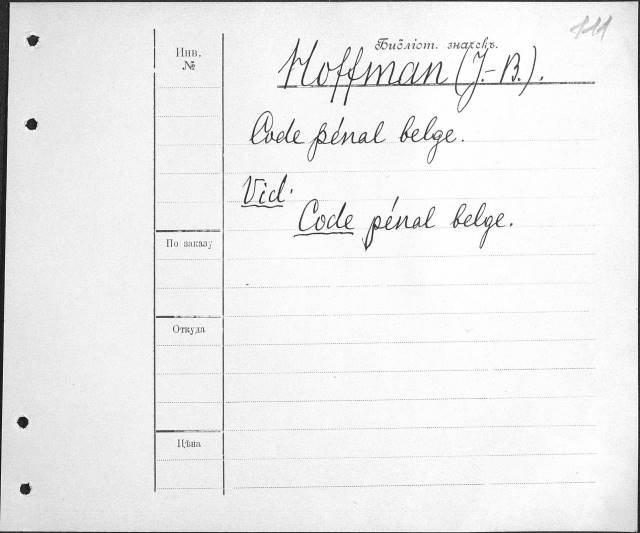 111
Библіот. значекъ.
Инв.
№
Hoffman (J.-B.).
Code pénal belge.
Vid.
Code pénal belge.
По заказу
Откуда
Цѣна